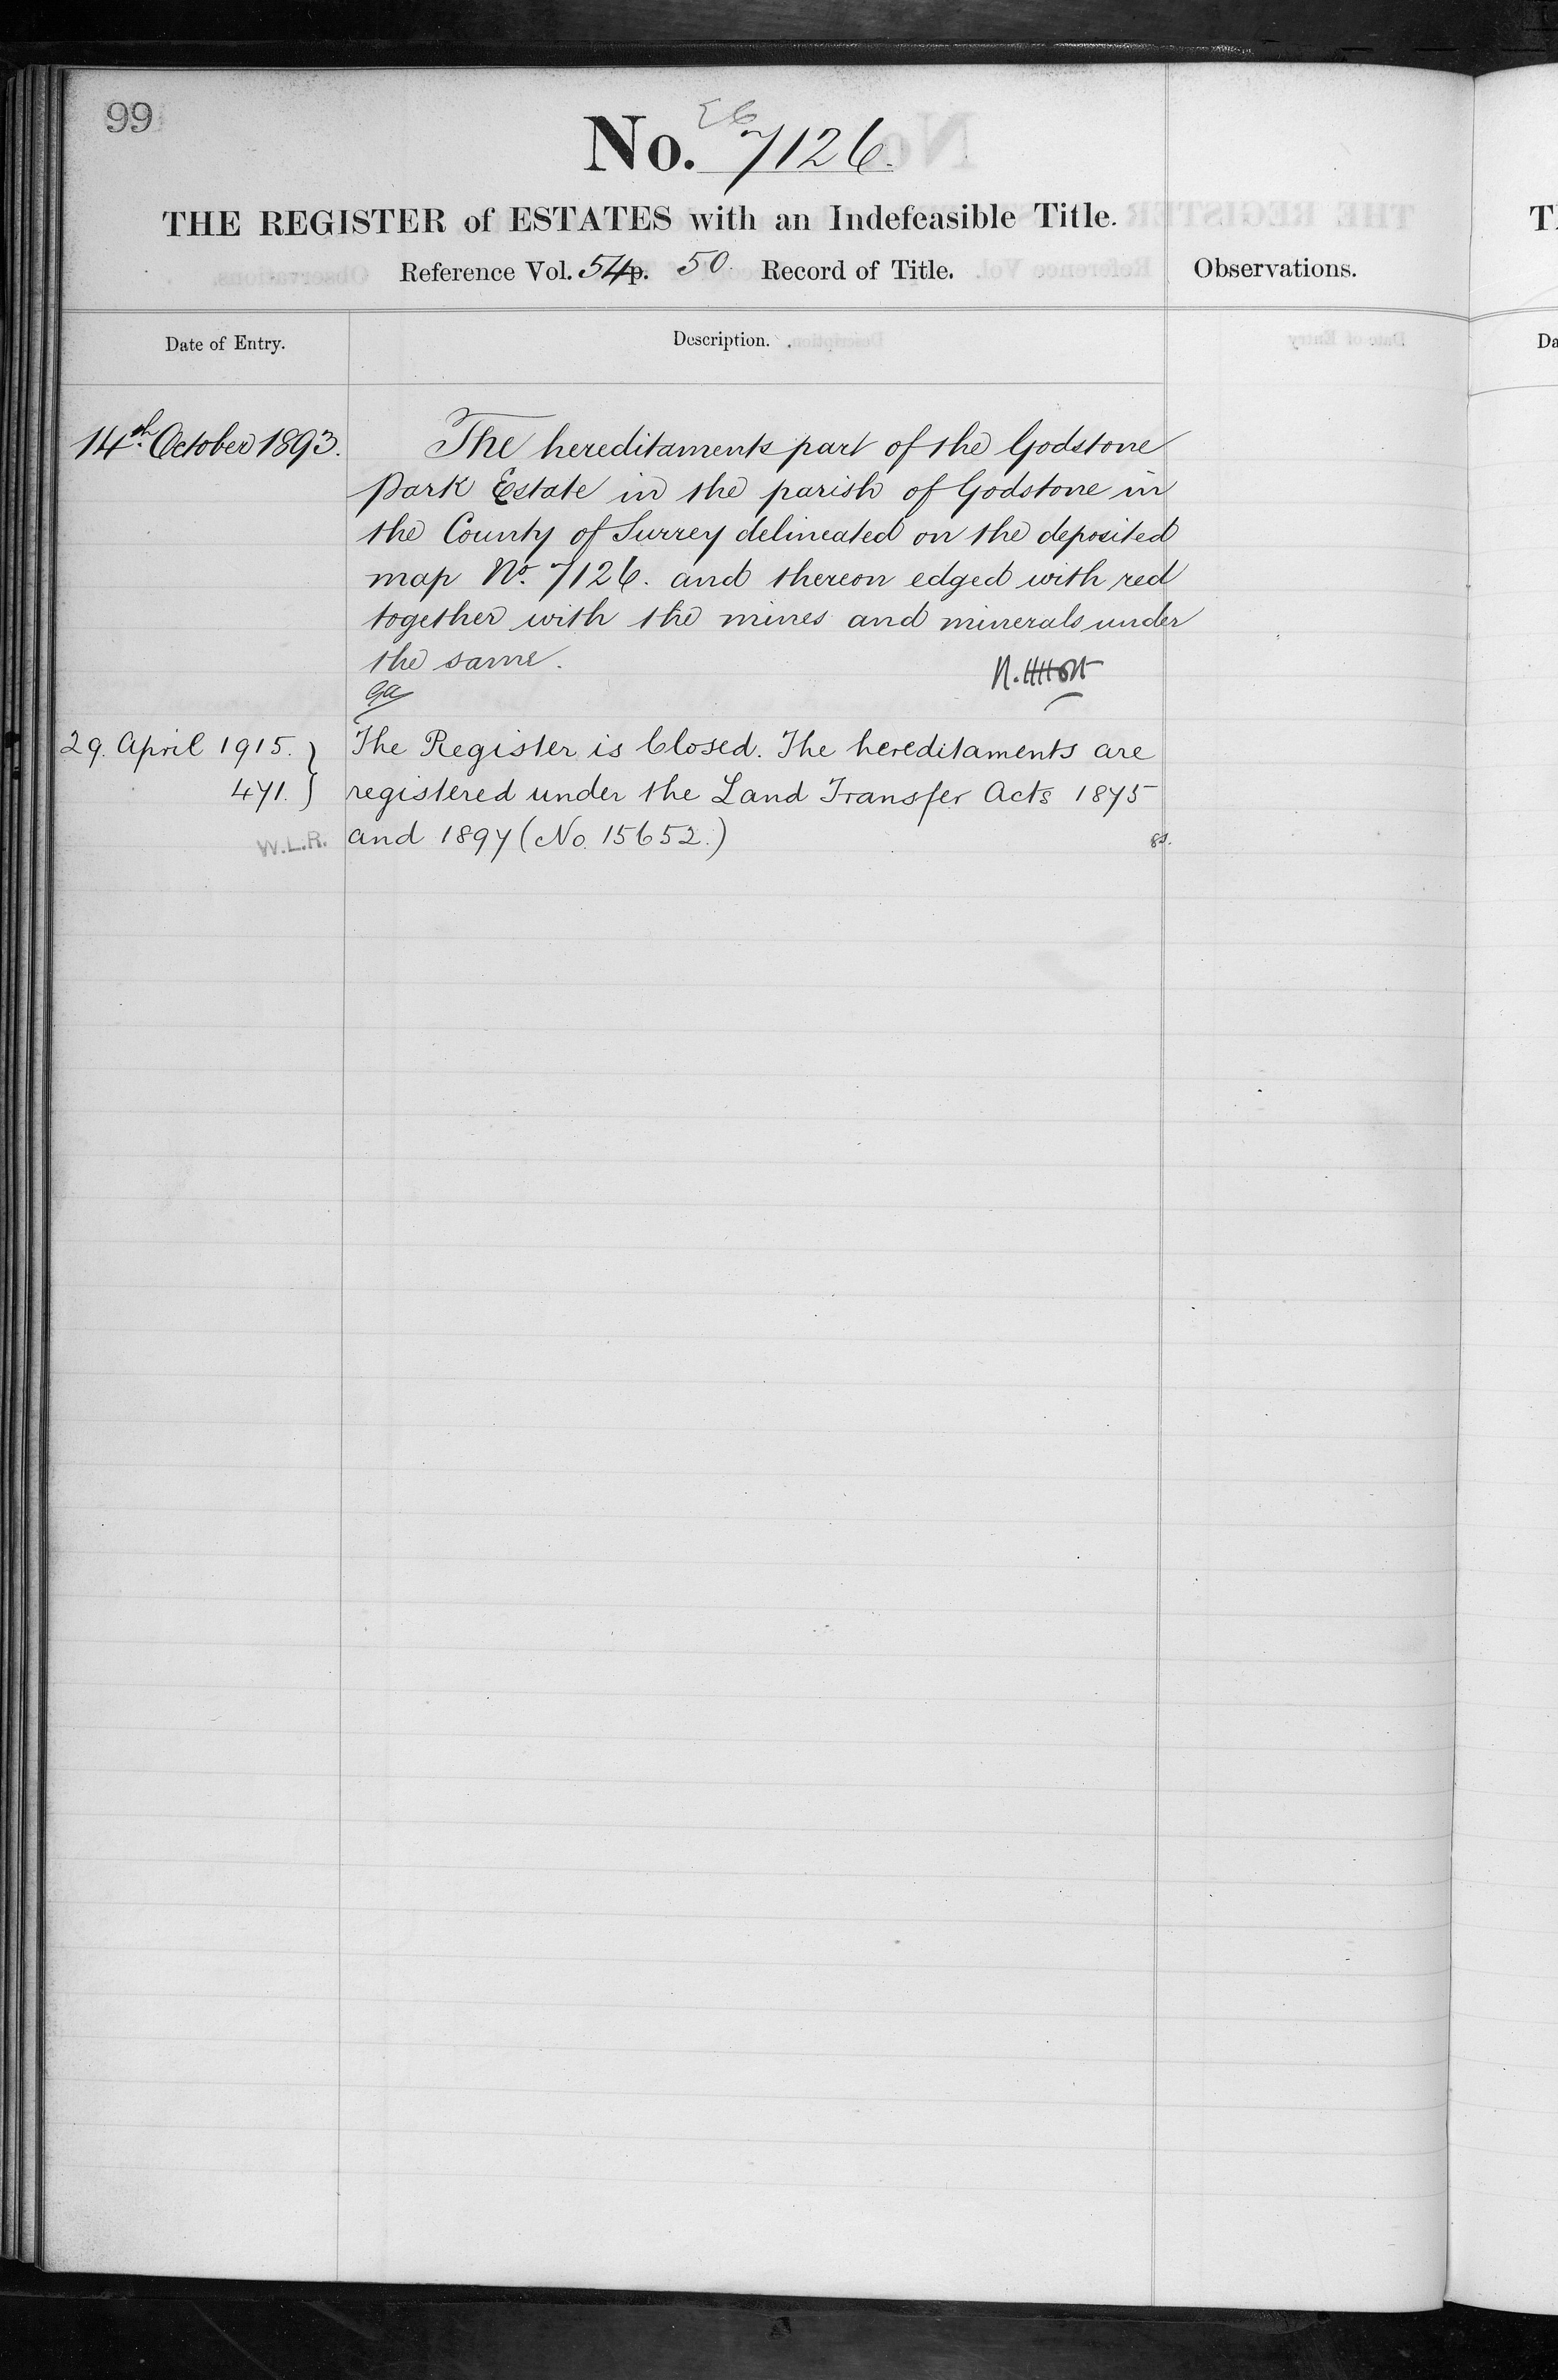 99
No. 7126.
THE REGISTER of ESTATES with an Indefeasible Title.
Reference Vol. 54 p. 50. Record of Title.
Observations.
Date of Entry.
Description.
14th October 1893.
The hereditaments part of the Godstone
Park Estate in the parish of Godstone in
the County of Surrey delineated on the deposited
map No. 7126. and thereon edged with red
together with the mines and minerals under
the same.
29. April 1915.
471.
The Register is Closed. The hereditaments are
registered under the Land Transfer Acts 1875
and 1897 (No. 15652.)
W.L.R.